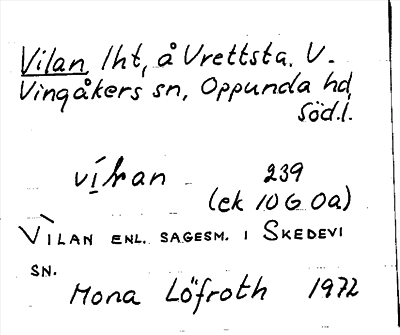 Vilan, lht, å Vrettsta, V.
Vingåkers sn, Oppunda hd,
Söd.l.
239
(ek 10 G 0a)
VÌLAN ENL. SAGESM. I SKEDEVI
SN.
Mona Löfroth 1972